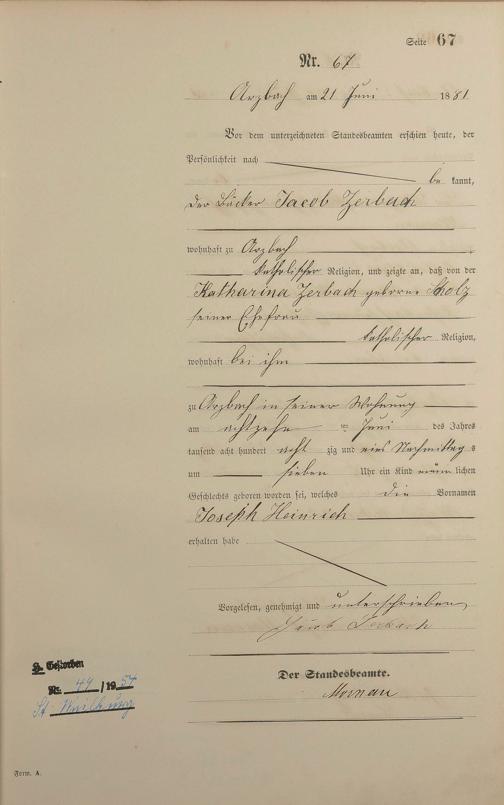 Seite 67
Nr. 67
Arzbach am 21 Juni 1881
Vor dem unterzeichneten Standesbeamten erschien heute, der
Persönlichkeit nach
be kannt,
der Bäcker Jacob Zerbach
wohnhaft zu Arzbach
katholischer Religion, und zeigte an, daß von der
Katharina Zerbach geborne
seiner Ehefrau
katholischer Religion,
wohnhaft bei ihm
zu Arzbach in seiner Wohnung
am achtzehn ten Juni des Jahres
tausend acht hundert acht zig und eins Nachmittag s
um sieben Uhr ein Kind männ lichen
Geschlechts geboren worden sei, welches die Vornamen
Joseph Heinrich
erhalten habe
Vorgelesen, genehmigt und unterschrieben
Jacob Zerbach
Der Standesbeamte.
Gestorben
Nr. 44 / 1954
St.
Form. A.